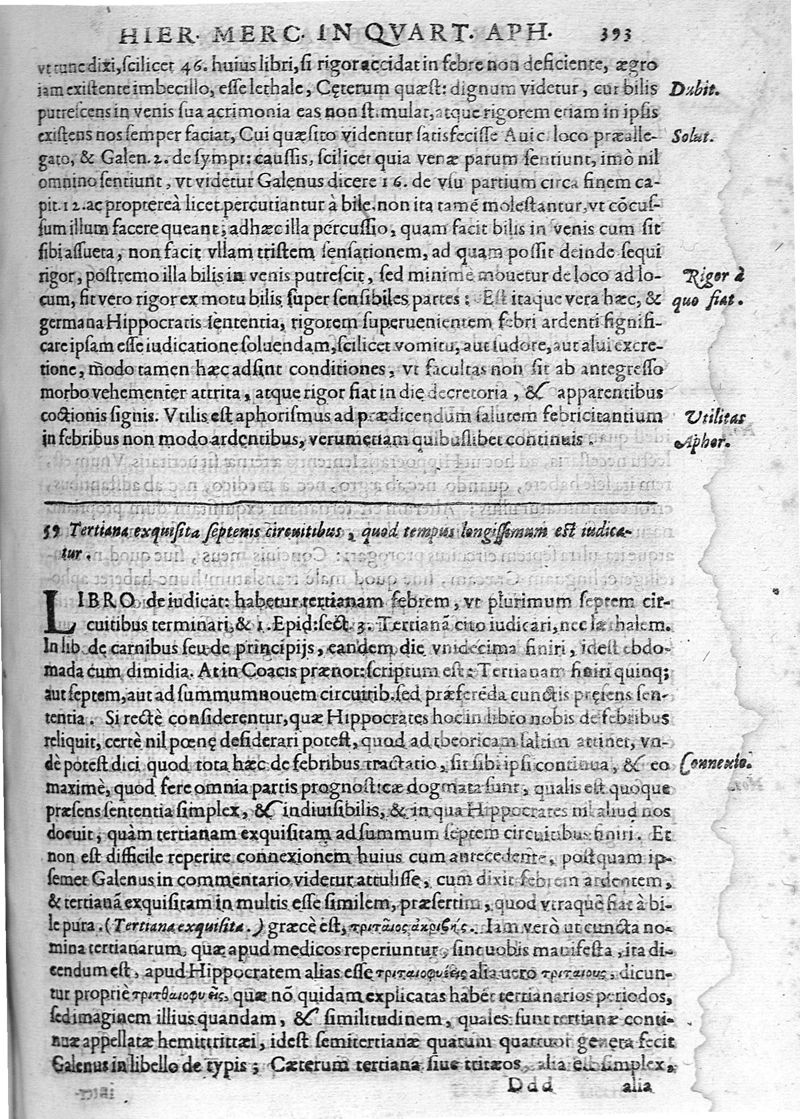 HIER. MERC. IN QVART. APH. 393
vt tunc dixi, scilicet 46. huius libri, si rigor accidat in febre non deficiente, ægro
iam existente imbecillo, esse lethale, Cęterum quæst: dignum videtur, cur bilis
Dubit.
putrescens in venis sua acrimonia eas non stimular, atque rigorem etiam in ipsis
existens nos semper faciat, Cui quæsito videntur satisfecisse Auic. loco præalle-
Solut.
gato, & Galen. 2. de sympt: caussis, scilicet quia venæ parum sentiunt, imò nil
omnino sentiunt, vt videtur Galenus dicere 16. de vsu partium circa finem ca-
pit. 12. ac proptereà licet percutiantur à bile, non ita tamē molestantur, vt cōcus-
sum illum facere queant; adhæc illa pércussio, quam facit bilis in venis cum sit
sibi assueta, non facit vllam tristem sensationem, ad quam possit deinde sequi
rigor, postremo illa bilis in venis putrescit, sed minimè mouetur de loco ad lo-
Rigor à
cum, fit vero rigor ex motu bilis super sensibiles partes: Est itaque vera hæc, &
quo fiat.
germana Hippocratis sententia, rigorem superuenientem febri ardenti signifi-
care ipsam esse iudicatione soluendam, scilicet vomitu, aut sudore, aut alui excre-
tione, modo tamen hæc adsint conditiones, vt facultas non sit ab antegresso
morbo vehementer attrita, atque rigor fiat in die decretoria, & apparentibus
coctionis signis. Vtilis est aphorismus ad prædicendum salutem febricitantium
Vtilitas
in febribus non modo ardentibus, verumetiam quibuslibet continuis.
Aphor.
59 Tertiana exquisita septenis circuitibus, quod tempus longissimum est iudica-
tur.
LIBRO de iudicat: habetur tertianam febrem, vt plurimum septem cir-
cuitibus terminari, & 1. Epid: sect. 3. Tertianā cito iudicari, nec læthalem.
In lib. de carnibus seu de principijs, eandem die vndecima finiri, idest ebdo-
mada cum dimidia. At in Coacis prænot: scriptum est: Tertianam finiri quinq;
aut septem, aut ad summum nouem circuitib. sed præferēda cunctis pręsens sen-
tentia. Si rectè considerentur, quæ Hippocrates hoc in libro nobis de febribus
reliquit, certè nil pœnę desiderari potest, quod ad theoricam saltim attinet, vn-
dè potest dici quod tota hæc de febribus tractatio, sit sibi ipsi continua, & eo
Connexio.
maximè, quod fere omnia partis prognosticæ dogmata sunt, qualis est quoque
præsens sententia simplex, & indiuisibilis, & in qua Hippocrates nil aliud nos
docuit, quàm tertianam exquisitam ad summum septem circuitibus finiri. Et
non est difficile reperire connexionem huius cum antecedente, postquam ip-
semet Galenus in commentario videtur attulisse, cum dixit febrem ardentem,
& tertianā exquisitam in multis esse similem, præsertim, quod vtraque fiat à bi-
le pura. (Tertiana exquisita.) græcè est, τριταῖος ἀκριβής. Iam verò ut cuncta no-
mina tertianarum, quæ apud medicos reperiuntur, sint uobis manifesta, ita di-
cendum est, apud Hippocratem alias esse τριταιοφυεῖς alia uero τριταιους, dicun-
tur propriè τριθαιοφυεῖς, quæ nō quidam explicatas habēt tertianarios periodos,
sed imaginem illius quandam, & similitudinem, quales sunt tertianæ conti-
nuæ appellatæ hemitrittæi, idest semitertianæ quarum quattuor genera fecit
Galenus in libello de typis; Cæterum tertiana siue tritæos, alia est simplex,
Ddd alia